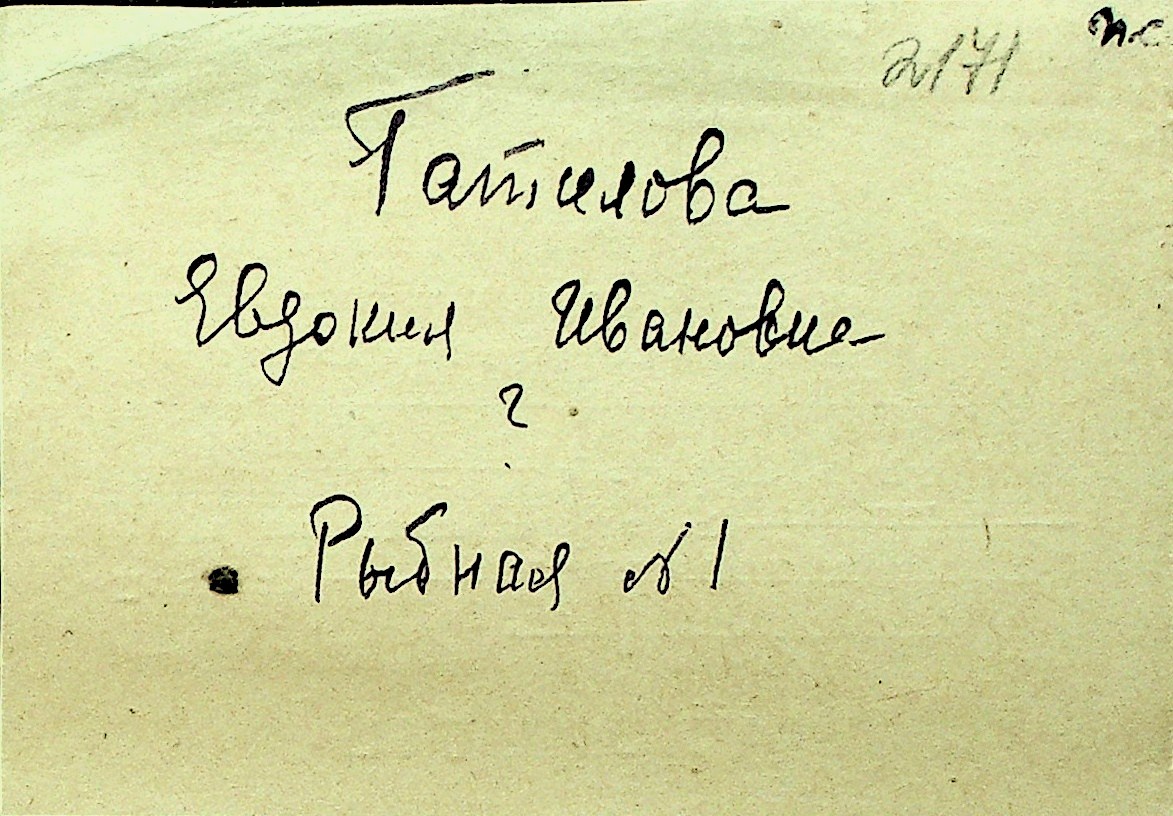 2171
Гатилова
Евдокия Ивановна
?
Рыбная №1